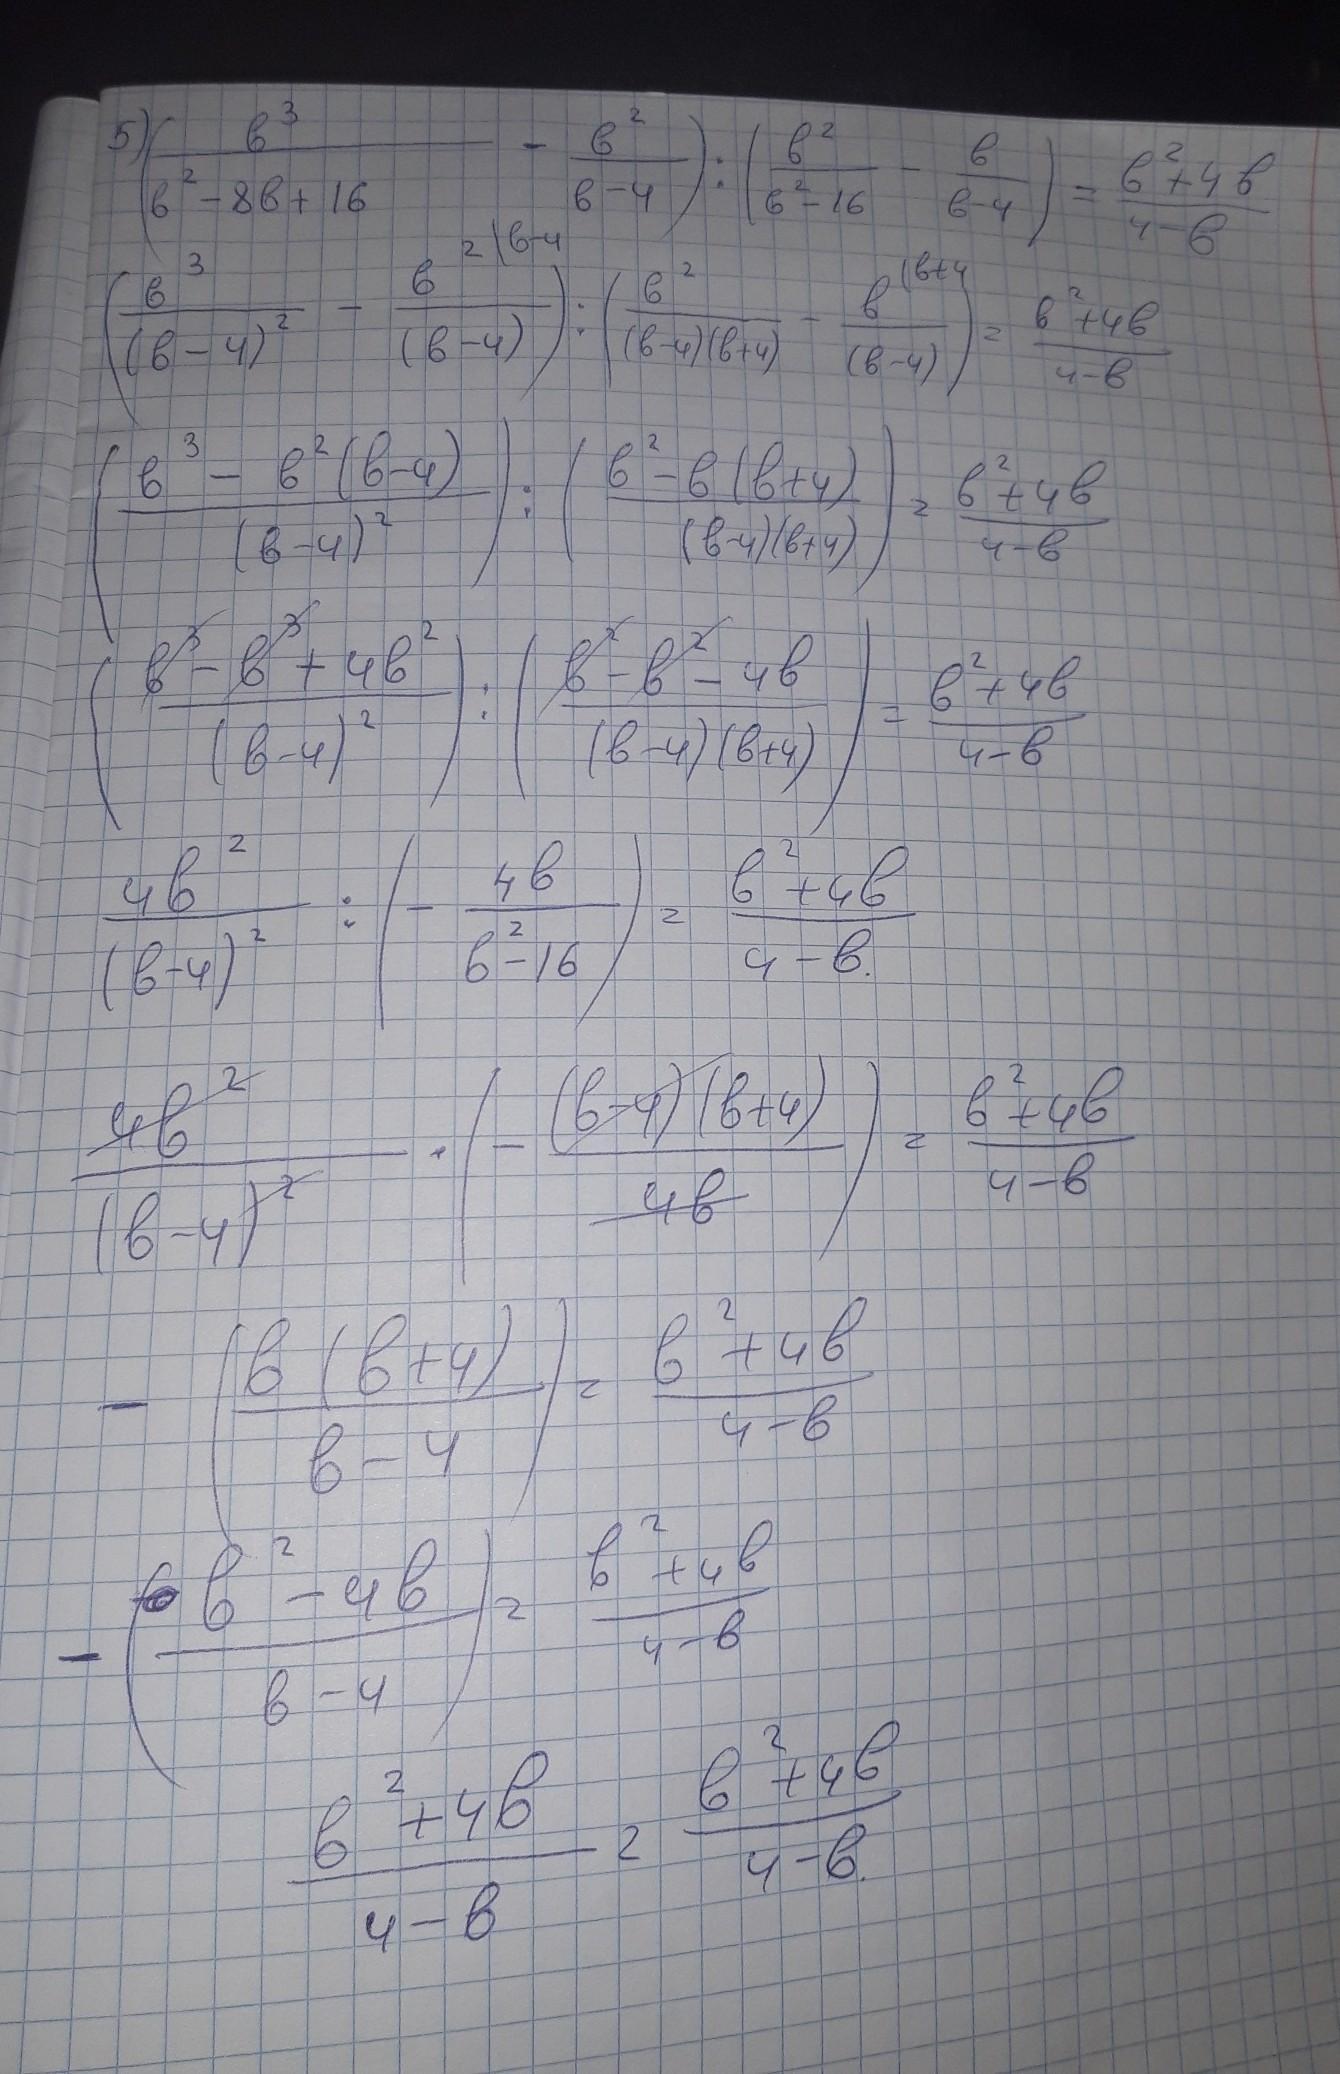 5) (в³/(в²-8в+16) - в²/(в-4)) : (в²/(в²-16) - в/(в-4)) = (в²+4в)/(4-в)
(в³/(в-4)² - в²\в-4/(в-4)) : (в²/((в-4)(в+4)) - в(в+4/(в-4)) = (в²+4в)/(4-в)
((в³ - в²(в-4))/(в-4)²) : ((в²-в(в+4))/((в-4)(в+4))) = (в²+4в)/(4-в)
((в³-в³+4в²)/(в-4)²) : ((в²-в²-4в)/((в-4)(в+4))) = (в²+4в)/(4-в)
4в²/(в-4)² : (- 4в/(в²-16)) = (в²+4в)/(4-в).
4в²/(в-4)² · (- (в-4)(в+4)/4в) = (в²+4в)/(4-в)
- (в(в+4)/(в-4)) = (в²+4в)/(4-в)
- ((в²-4в)/(в-4)) = (в²+4в)/(4-в)
(в²+4в)/(4-в) = (в²+4в)/(4-в).